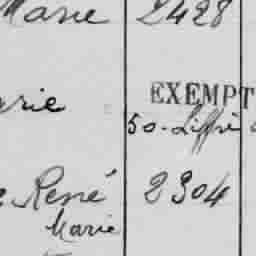 Marie 2428
EXEMPT
50. Liffré
René 2304
Marie